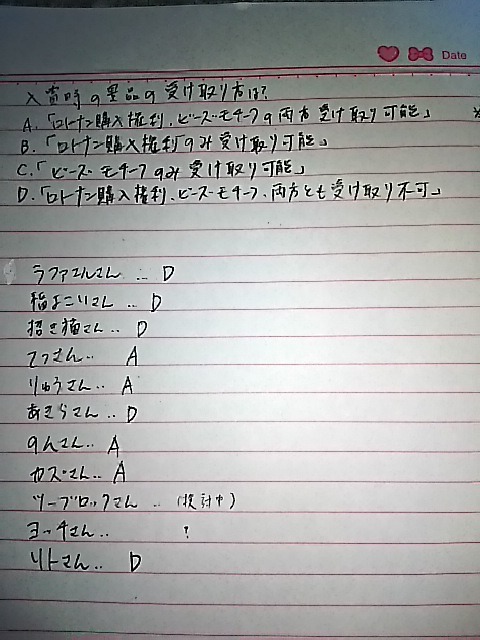 Date
入賞時の景品の受け取り方は?
A.「ロトナン購入権利、ビーズモチーフの両方受け取り可能」
B.「ロトナン購入権利のみ受け取り可能」
C.「ビーズモチーフのみ受け取り可能」
D.「ロトナン購入権利、ビーズモチーフ、両方とも受け取り不可」
ラファエルさん‥D
福よこいさん‥D
招き猫さん‥D
てつさん‥A
りゅうさん‥A
あきらさん‥D
のんさん‥A
カズさん‥A
ツーブロックさん‥(検討中)
ヨッチさん‥?
リトさん‥D